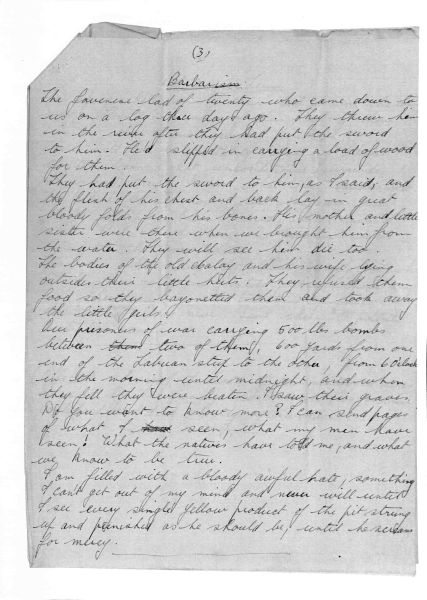 (3)
Barbarism.
The Javenese lad of twenty who came down to
us on a log three days ago. They threw him
in the river after they had put the sword
to him. He'd slipped in carrying a load of wood
for them.
They had put the sword to him, as I said, and
the flesh of his chest and back lay in great
bloody folds from his bones. His mother and little
sister were there when we brought him from
the water. They will see him die too.
The bodies of the old and his wife lying
outside their little huts. They refused them
food so they bayonetted them and took away
the little girls.
Our prisoners of war carrying 500 lbs bombs
between two of them, 600 yards from one
end of the Labuan strip to the other, from 6 O'clock
in the morning until midnight, and when
they fell they were beaten. I saw their graves.
Do you want to know more? I can send pages
of what I seen, what my men have
seen! What the natives have told me, and what
we know to be true.
I am filled with a bloody awful hate, something
I cant get out of my mind and never will until
I see every single yellow product of the pit strung
up and punished as he should be, until he screams
for mercy.